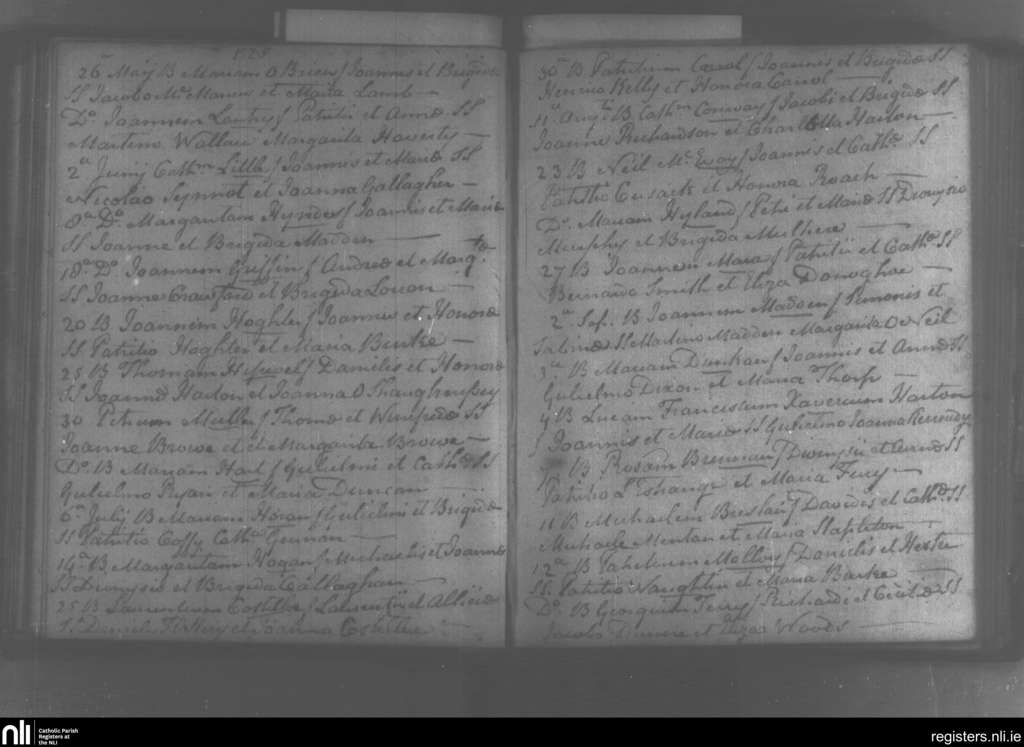 1828
26ª May B Mariam O Brien f Joannis et Brigidæ
SS Jacobo Mc Manus et Maria Lamb
Dº Joannem Lantry f Patritii et Annæ SS
Martino Wallace Margarita Haverty
2ª Junij Cathm Lilly f Joannis et Mariæ SS
Nicolao Synnot et Joanna Gallagher
8ª Dº Margaritam Hyndes f Joannis et Mariæ
SS Joanne et Brigida Madden
18ª Dº Joannem Griffin f Andreæ et Margtæ
SS Joanne Crawford et Brigida
20 B Joannem Hoghler f Joannis et Honoræ
SS Patritio Hoghler et Maria Burke
25 B Thomam f Danielis et Honoræ
SS Joanne Harton et Joanna O Shaughnessy
30 Petrum Muller f Thomæ et Winifredæ SS
Joanne Browe et Margarita Browe
Dº B Mariam Hart f Gulielmi et Cathæ SS
Gulielmo Ryan et Maria Duncan
6ª Julij B Mariam Horan f Gulielmi et Brigidæ
SS Patritio Coffy Catha
14ª B Margaritam Hogan f Michaelis et Joannæ
SS Dionysio et Brigida Callaghan
25 B Laurentium Costelloe f Laurentii et Alliciæ
SS Daniele et Joanna Costelloe
30ª B Patritium Carrol f Joannis et Brigidæ SS
Henrico Kelly et Honora Carrol
11ª Augti B Cathm Conway f Jacobi et Brigidæ SS
Joanne Richardson et Charlotta Harton
23 B Neil Mc Evoy f Joannis et Cathæ SS
Patritio Cusack et Honora Roach
Dº Mariam Hyland f Petri et Mariæ SS Dionysio
Murphy et Brigida
27 B Joannem Mara f Patritii et Cathæ SS
Bernardo Smith et Eliza Donoghoe
2ª Sep. B Joannem Madden f Simonis et
Sabinæ SS Martino Madden Margarita O Neil
3ª B Mariam Dunkan f Joannis et Annæ SS
Gulielmo Dixon et Maria Thorp
4 B Lucam Franciscum Xaverium Harton
f Joannis et Mariæ SS Gulielmo Joanna Kennedy
B Rosam Brennan f Dionysii et Annæ SS
Patritio L'Estrange et Maria Fury
11 B Michaelem Breslan f Davidis et Cathæ SS
Michaele et Maria Stapleton
12ª B Patritium Mollins f Danielis et Hester
SS. Patritio Naughten et Maria Burke
Dº B Georgium Terry f Richardi et Ceciliæ SS
Jacobo et Eliza Woods
nli
Catholic Parish
Registers at
the NLI
registers.nli.ie